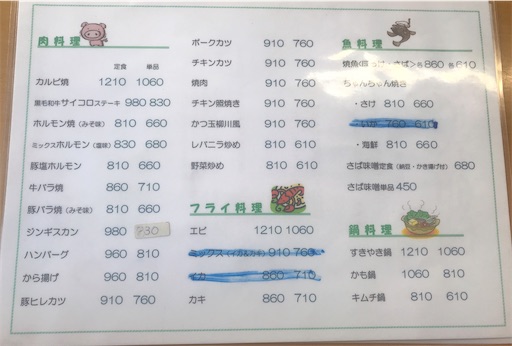 肉料理
定食 単品
カルビ焼 1210 1060
黒毛和牛サイコロステーキ 980 830
ホルモン焼(みそ味) 810 660
ミックスホルモン(塩味) 830 680
豚塩ホルモン 810 660
牛バラ焼 860 710
豚バラ焼(みそ味) 810 660
ジンギスカン 980 730
ハンバーグ 960 810
から揚げ 960 810
豚ヒレカツ 910 760
ポークカツ 910 760
チキンカツ 910 760
焼肉 910 760
チキン照焼き 910 760
かつ玉柳川風 910 760
レバニラ炒め 810 610
野菜炒め 810 610
フライ料理
エビ 1210 1060
ミックス(イカ&カキ) 910 760
イカ 860 710
カキ 860 710
魚料理
焼魚<ほっけ・さば>各860 各610
ちゃんちゃん焼き
・さけ 810 660
・いか 760 610
・海鮮 810 660
さば味噌定食(納豆・かき揚げ付) 680
さば味噌単品 450
鍋料理
すきやき鍋 1210 1060
かも鍋 1060 810
キムチ鍋 810 610